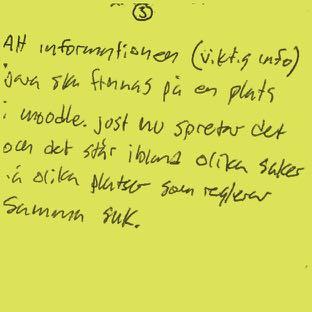 ③
Att informationen (viktig info)
bara ska finnas på en plats
i moodle. just nu spretar det
och det står ibland olika saker
på olika platser som reglerar
samma sak.